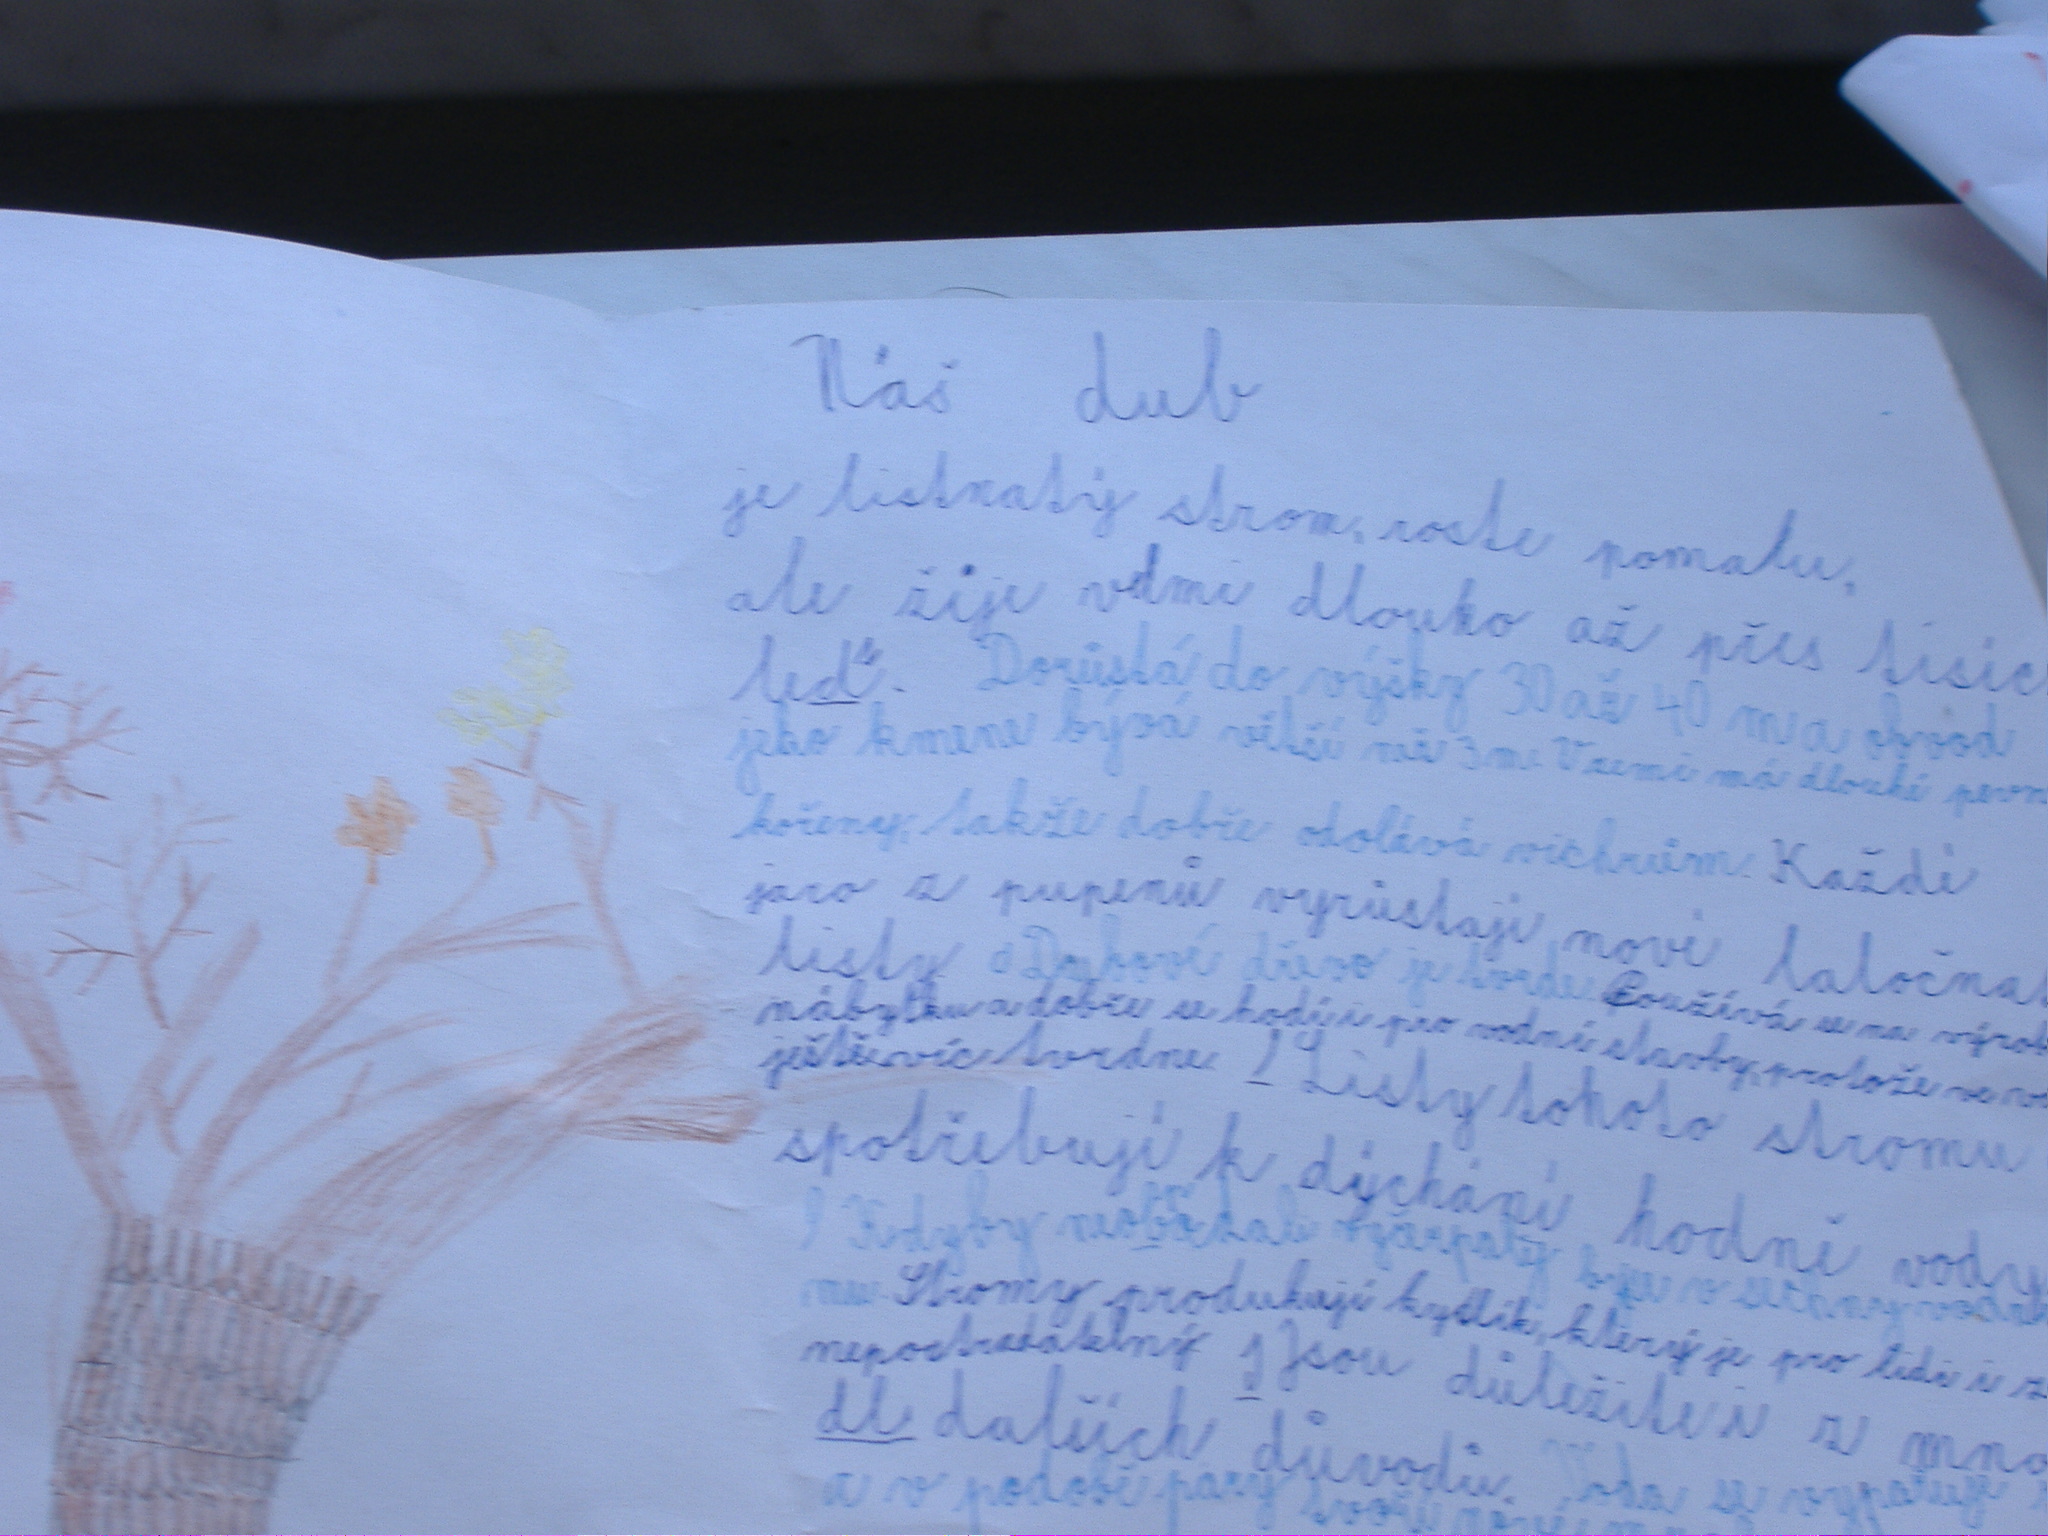 Náš dub
je listnatý strom, roste pomalu,
ale žije velmi dlouho až přes tisíc
leď. Dorůstá do výšky 30 až 40 m a obvod
jeho kmene bývá větší než 3 m. V zemi má dlouhé pevn
kořeny, takže dobře odolává vichrům. Každé
jaro z pupenů vyrůstají nové laločnat
listy. Dubové dřevo je tvrdé. Používá se na výrob
nábytku a dobře se hodí i pro vodní stavby, protože ve vo
ještě víc tvrdne. Listy tohoto stromu
spotřebují k dýchání hodně vody
Kdyby v
nu. Stromy produkují kyslík, který je pro lidi i z
nepostradatelný Jsou důležité i z mno
dl dalších důvodů. Voda se vypařuje
a v podobě páry tvoří